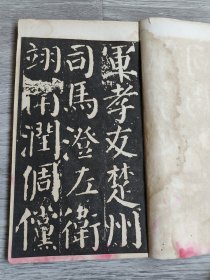 軍孝友楚州
司馬澄左衛
翊衛潤倜儻